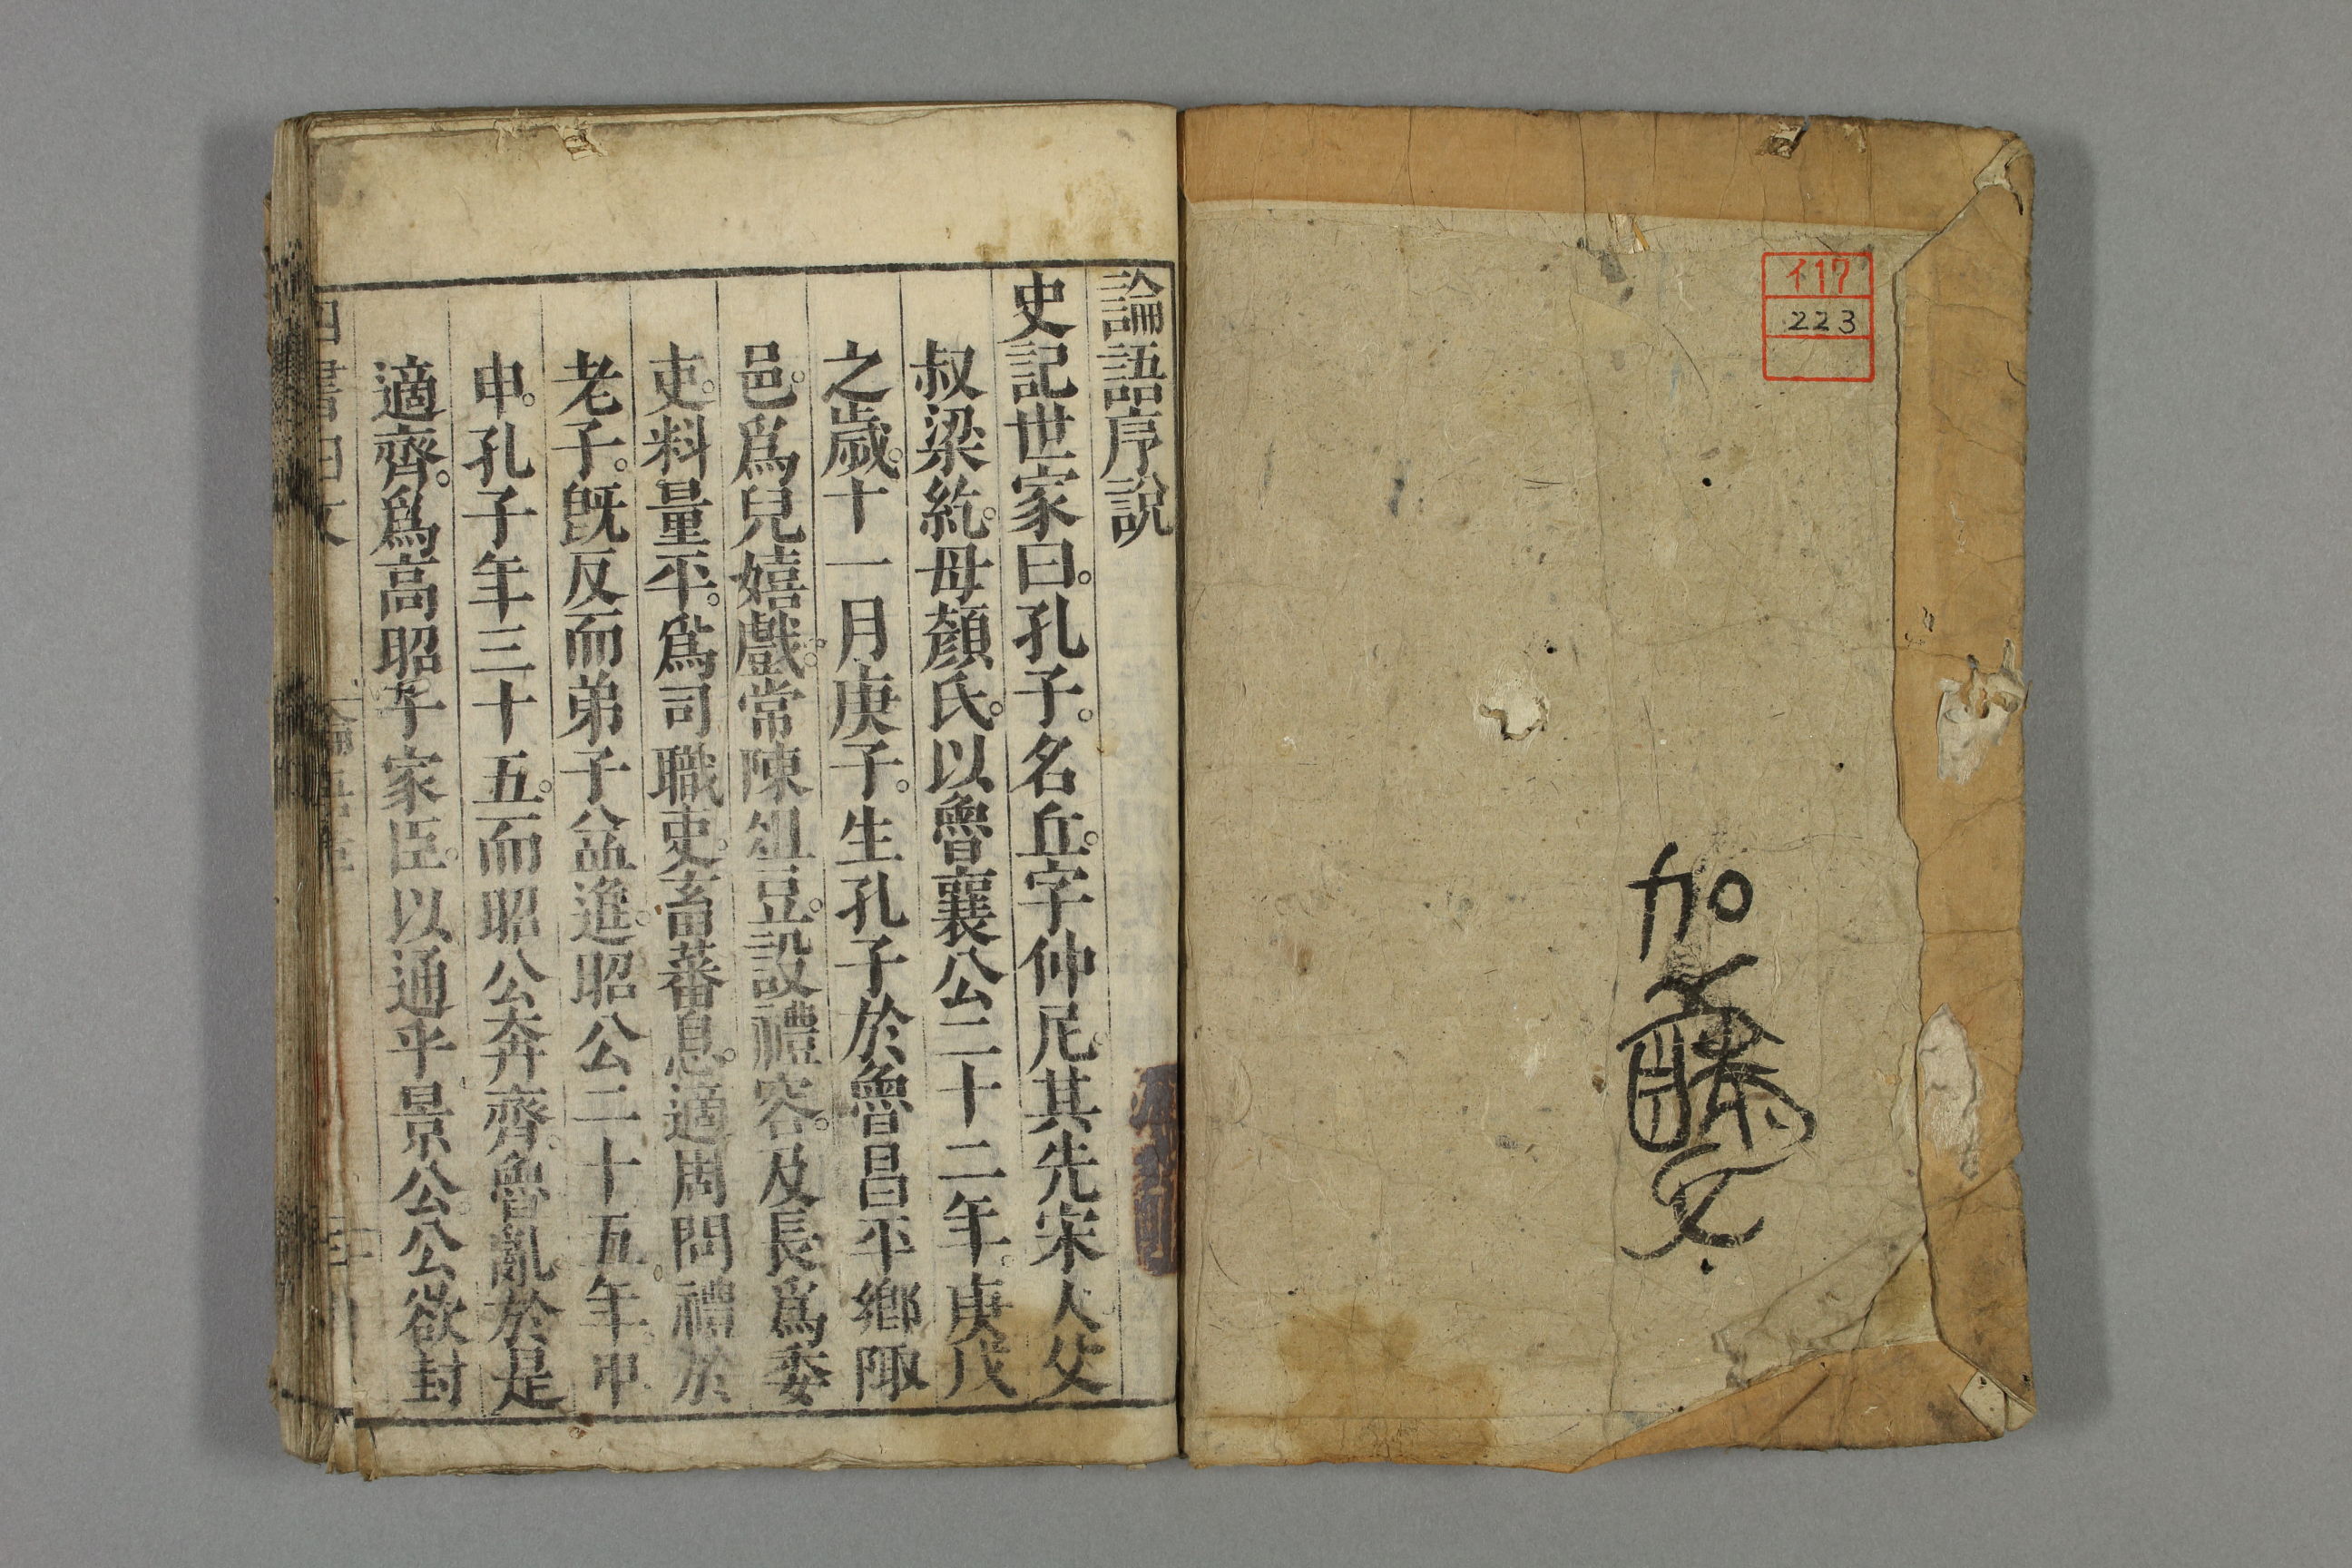 イ17
223
加藤
論語序說
史記世家曰。孔子。名丘。字仲尼。其先宋人父
叔梁紇。母顏氏。以魯襄公二十二年。庚戌
之歲。十一月庚子。生孔子於魯昌平鄉陬
邑。爲兒嬉戲。常陳俎豆。設禮容。及長爲委
吏。料量平。爲司職吏。畜蕃息。適周問禮於
老子。旣反而弟子益進。昭公二十五年。甲
申。孔子年三十五。而昭公奔齊。魯亂。於是
適齊。爲高昭子家臣。以通乎景公。公欲封